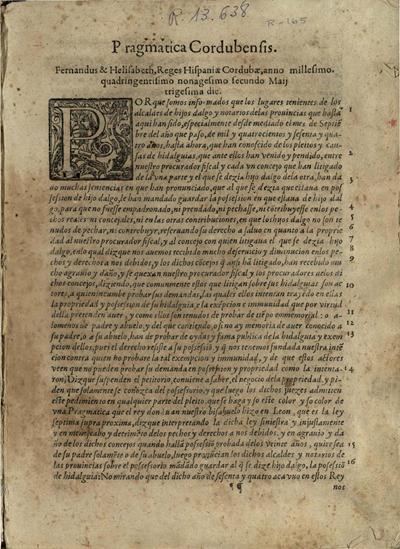 R. 13.638
R-165
Pragmatica Cordubensis.
Fernandus & Helisabeth, Reges Hispaniæ Cordubæ, anno millesimo.
quadringentisimo nonagesimo secundo Maij
trigesima die.
POR que somos informados que los lugares tenientes de los
alcaldes de hijos dalgo y notarios delas prouincias que hasta
aqui han sido, especialmente desde mediado el mes de Septiẽ
bre del año que paso, de mil y quatrocientos y sesenta y qua
tro años, hasta ahora, que han conoscido de los pleitos y cau
sas de hidalguias, que ante ellos han venido y pendido, entre
nuestro procurador fiscal y cada vn concejo que han litigado
de la vna parte y el que se dezia hijo dalgo dela otra, han da
do muchas sentencias en que han pronunciado, que al que se dezia que estaua en pos
session de hijo dalgo, le han mandado guardar la possession en que estaua de hijo dal
go, para que no fuesse empadronado, ni prendado, ni pechasse, ni cõtribuyesse en los pe
chos reales ni concejales, ni en las otras contribuciones, en que los hijos dalgo no son te
nudos de pechar, ni contribuyr, reseruando su derecho a saluo en quanto a la proprie
dad al nuestro procurador fiscal, y al concejo con quien litigaua el que se dezia hijo
dalgo, en lo qual diz que nos auemos recibido mucho deseruicio y diminucion en los pe
chos y derechos a nos debidos, y los dichos cõcejos q̃ ansi hã litigado, han recebido mu
cho agrauio y daño, y se quexan nuestro procurador fiscal y los procuradores delos di
chos concejos, diziendo, que comunmente estos que litigan sobre sus hidalguias son ac
tores, a quien incumbe probar sus demandas, las quales ellos intentan
la propriedad y possession de su hidalguia y la exẽpcion e immunidad, que por virtud
della pretenden auer, y como ellos son tenudos de probar de tiẽpo immemorial: o a
lomenos de padre y abuelo, y del que contiendo, o si no ay memoria de auer conocido a
su padre, o a su abuelo, han de probar de oydas y fama publica de la hidalguia y exem
pcion dellos, pues el derecho resiste a su possession, y q̃ nos tecemos fundada nuestra intẽ
cion contra quien no probare la tal exempcion e immunidad, y de que estos actores
veen que no pueden probar su demanda en possession y propriedad como la intenta-
ron, Diz que suspenden el petitorio, conuiene a saber, el negocio dela propriedad, y pi-
den que solamente se conozca del possessorio, y que luego los dichos juezes admiten
este pedimiento en qualquier parte del pleito que se haga y so este color y so color de
vna Pragmatica que el rey don Iuan nuestro bisabuelo hizo en Leon, que es la ley
septima supra proxima, diz que interpretando la dicha ley siniestra y injustamente
y en menoscabo y detrimẽto delos pechos y derechos a nos debidos, y en agrauio y da
ño delos dichos concejos quando hallã possessiõ probada delos veinte años, quier sea
de su padre solamẽte o de su abuelo, luego pronũcian los dichos alcaldes y notarios de
las prouincias sobre el possessorio mãdado guardar al q̃ se dize hijo dalgo, la possessiõ
de hidalguia: No mirando que del dicho año de sesenta y quatro aca vuo en estos Rey
¶¶ nos